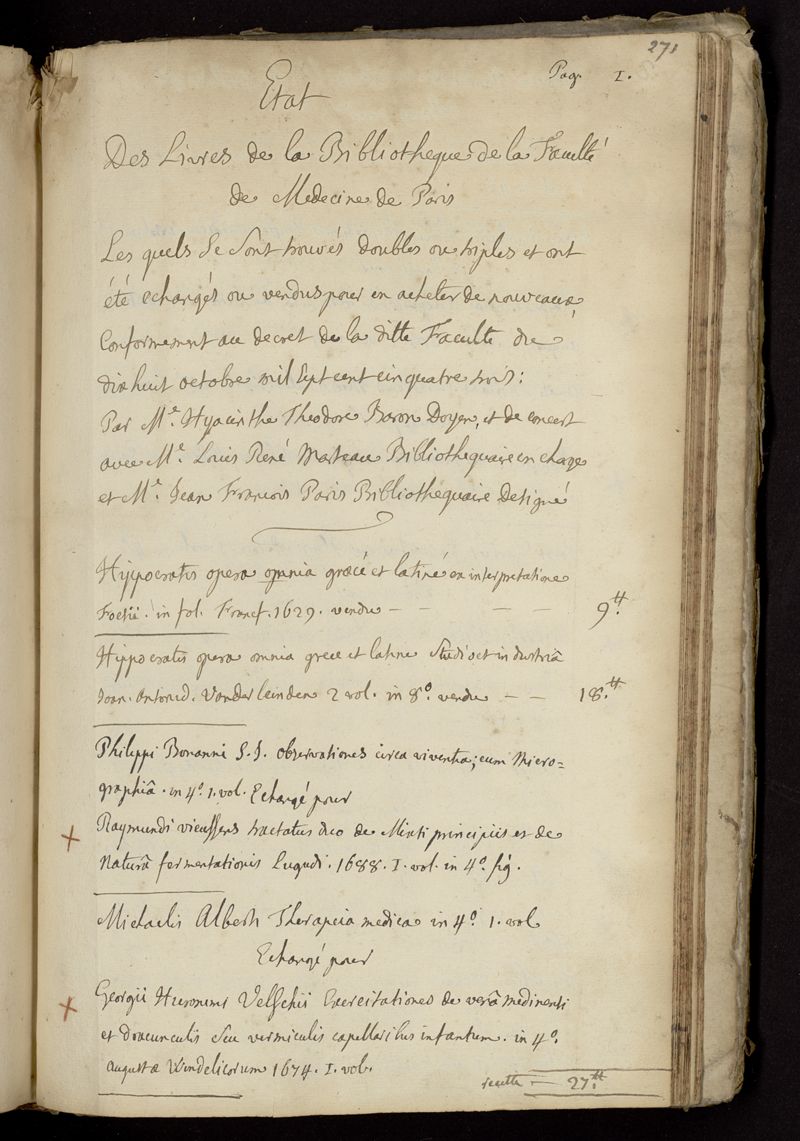 271
Pag. 1.
Etat
Des Livres de la Bibliotheque de la Faculté
de Medecine de Paris
Les quels Se Sont trouvés doubles ou triples et ont
été echangés ou vendus pour en acheter de nouveaux,
Conformement au decret de la ditte Faculté du
dix huit octobre mil Sept cent cinquatre trois:
Par Me. Hyacinthe Theodore Baron Doyen, et de concert
avec Me. Louis René Marteau Bibliothequaire en charge
et Me. Jean Francois Paris Bibliothequaire Designé
Hyppocratis opera omnia græcé et latiné ex interpretatione
Foesii. in fol. Francf. 1629. vendu — — — — 9.tt
Hippocratis opera omnia grece et latine Studio et industriâ
Joan. Antonid. Vander leinden 2 vol. in 8o. vendu — — 18.tt
Philippi Bonanni S. J. observationes circa viventia; cum Micro=
graphiâ. in 4o. 1. vol. Echangé pour
+ Raymundi vieussens tractatus duo de Mixti principiis et de
Naturâ fermentationis Lugudi. 1688. I. vol. in 4o. fig.
Michaelis Alberti Therapeia medica in 4o. 1. vol
Echangé pour
+ Georgii Hieronimi Velschii Exercitationes de venâ medinensi
et dracunculis Seu vermiculis capillaribus infantum. in 4o.
Augustæ Vindelicorum 1674. I. vol.
recette — 27.tt